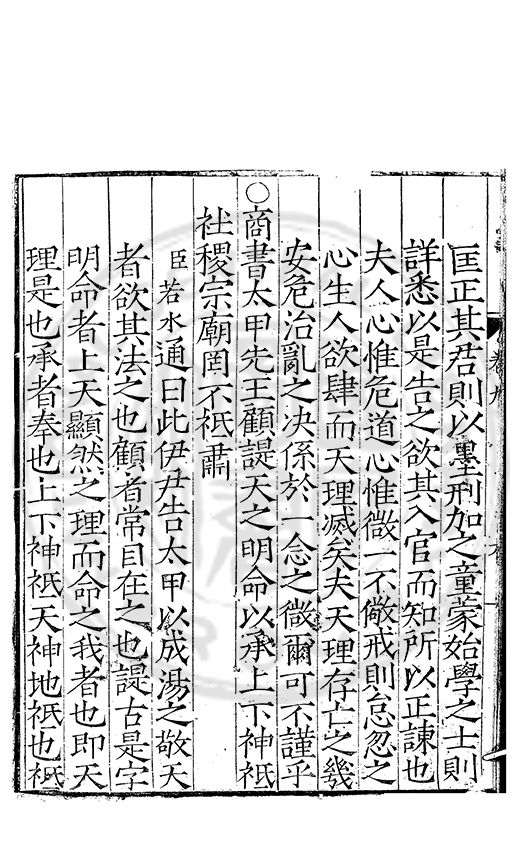 匡正其君則以墨刑加之童蒙始學之士則
詳悉以是告之欲其入官而知所以正諫也
夫人心惟危道心惟微一不儆戒則怠忽之
心生人欲肆而天理滅矣夫天理存亡之幾
安危治亂之决係於一念之微爾可不謹乎
○商書太甲先王顧諟天之明命以承上下神祇
社稷宗廟罔不祗肅
臣若水通曰此伊尹告太甲以成湯之敬天
者欲其法之也顧者常目在之也諟古是字
明命者上天顯然之理而命之我者也即天
理是也承者奉也上下神祗天神地祗也祗